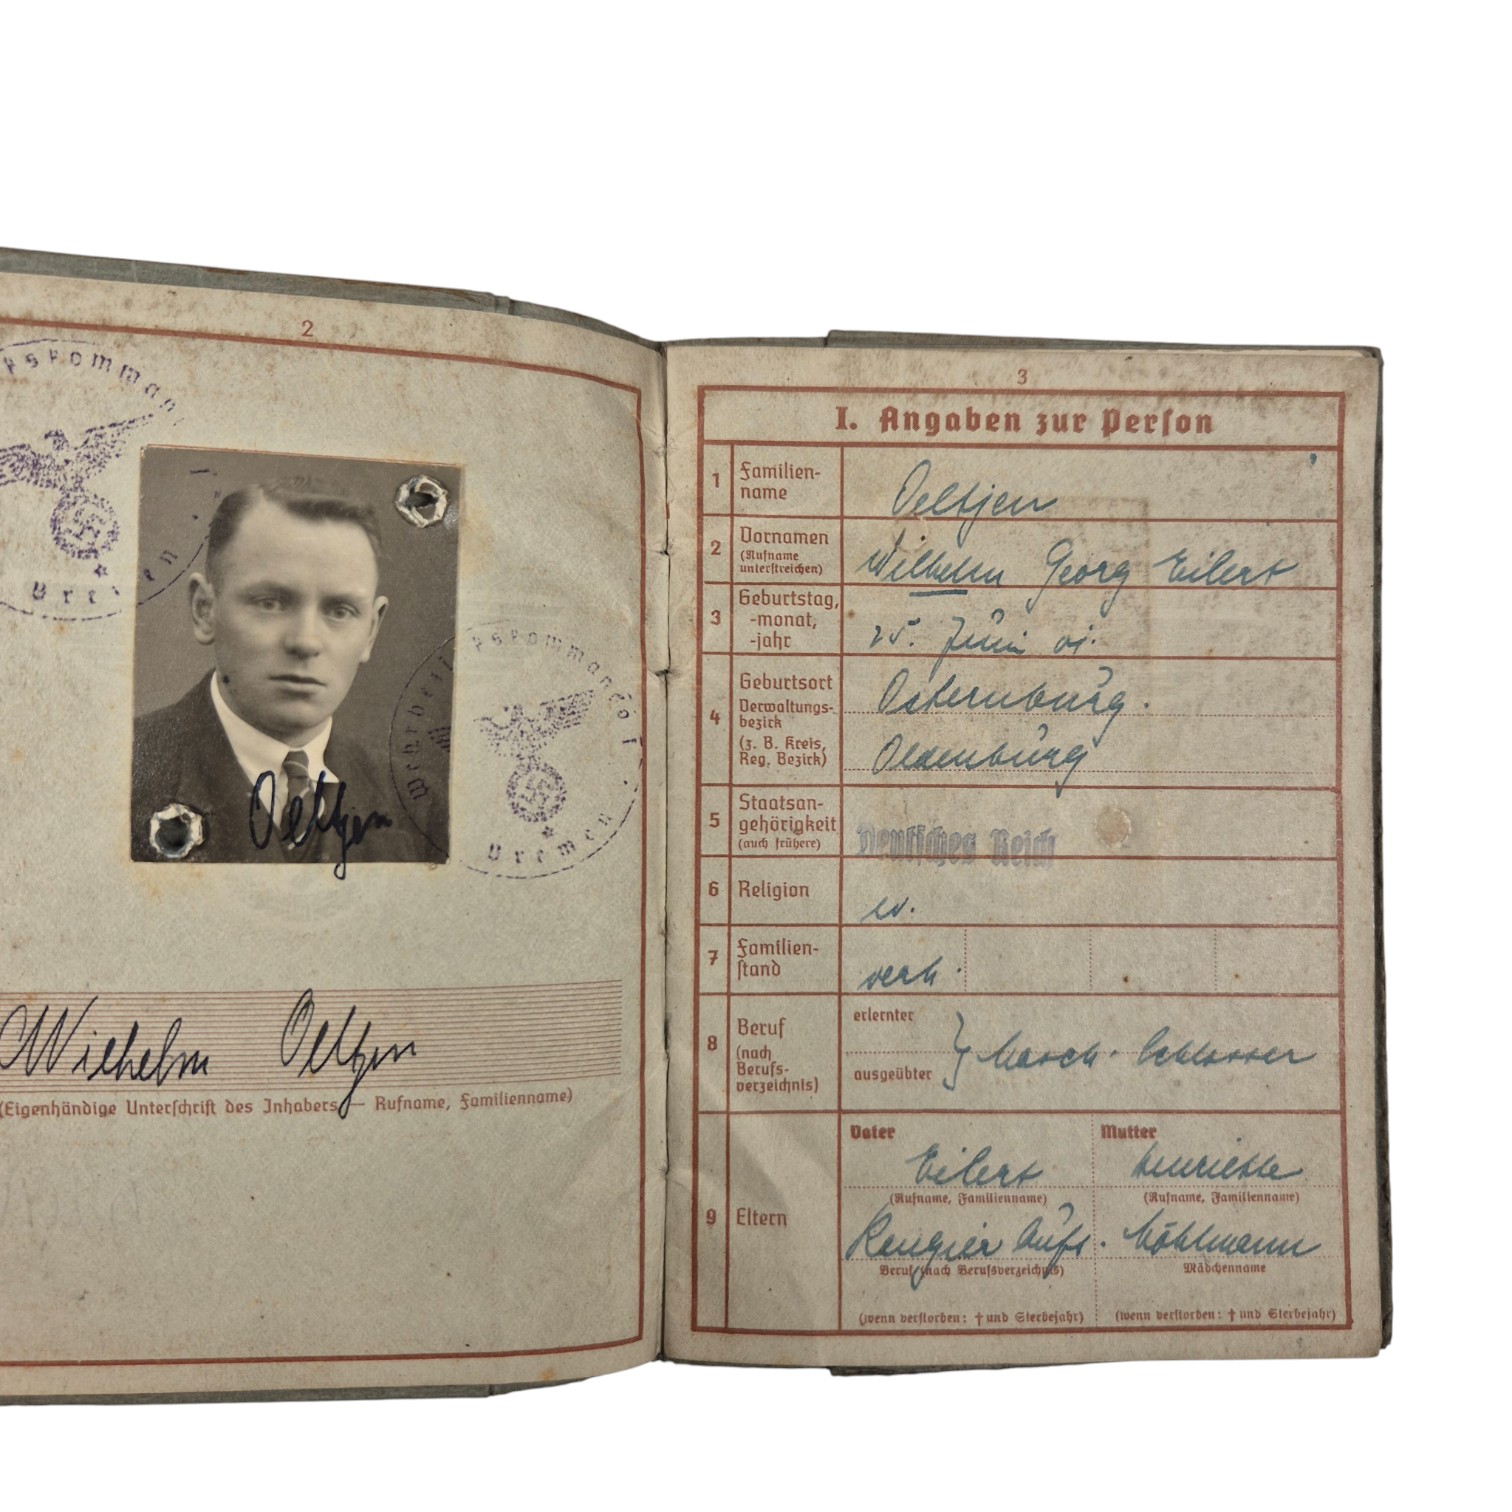 2
Bremen
Oeltjen
Wehrbezirkskommando I
Bremen
Wilhelm Oeltjen
(Eigenhändige Unterschrift des Inhabers — Rufname, Familienname)
3
I. Angaben zur Person
1 Familien-
name
Oeltjen
2 Vornamen
(Rufname
unterstreichen)
Wilhelm Georg Eilert
3 Geburtstag,
-monat,
-jahr
25. Juni 01.
4 Geburtsort
Osternburg.
Verwaltungs-
bezirk
(z. B. Kreis,
Reg. Bezirk)
Oldenburg
5 Staatsan-
gehörigkeit
(auch frühere)
Deutsches Reich
6 Religion
ev.
7 Familien-
stand
verh.
8 Beruf
(nach
Berufs-
verzeichnis)
erlernter
ausgeübter
Masch. Schlosser
9 Eltern
Vater Mutter
Eilert Henriette
(Rufname, Familienname) (Rufname, Familienname)
Rangier Aufs. Möhlmann
Beruf (nach Berufsverzeichnis) Mädchenname
(wenn verstorben: † und Sterbejahr) (wenn verstorben: † und Sterbejahr)